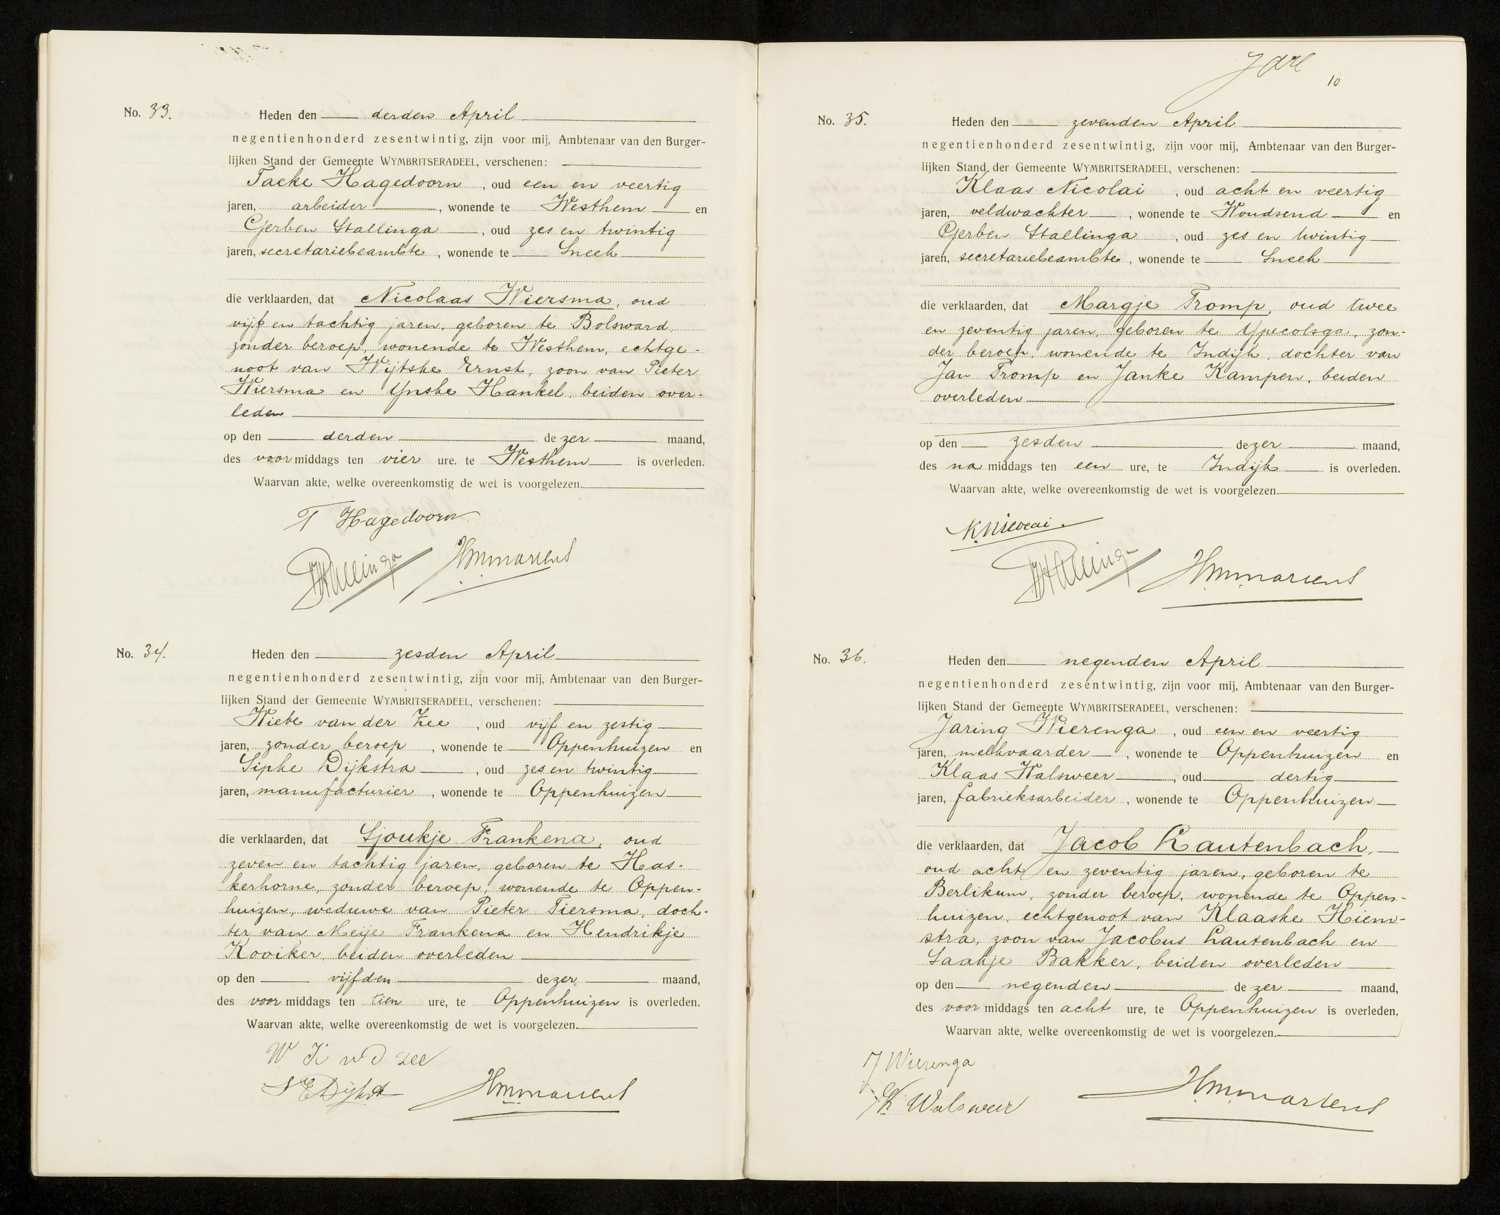 No. 33.
Heden den derden April
negentienhonderd zesentwintig, zijn voor mij, Ambtenaar van den Burger-
lijken Stand der Gemeente WYMBRITSERADEEL, verschenen:
Taeke Hagedoorn, oud een en veertig
jaren, arbeider, wonende te Westhem en
Gerben Stallinga, oud zes en twintig
jaren, secretariebeambte, wonende te Sneek
die verklaarden, dat Nicolaas Wiersma, oud
vijf en tachtig jaren, geboren te Bolsward,
zonder beroep, wonende te Westhem, echtge-
noot van Wijtske Ernst, zoon van Pieter
Wiersma en Ynske Hankel, beiden over-
leden
op den derden dezer maand,
des voormiddags ten vier ure, te Westhem is overleden.
Waarvan akte, welke overeenkomstig de wet is voorgelezen.
T Hagedoorn
Stallinga HMMartens
No. 34.
Heden den zesden April
negentienhonderd zesentwintig, zijn voor mij, Ambtenaar van den Burger-
lijken Stand der Gemeente WYMBRITSERADEEL, verschenen:
Wiebe van der Zee, oud vijf en zestig
jaren, zonder beroep, wonende te Oppenhuizen en
Sipke Dijkstra, oud zes en twintig
jaren, manufacturier, wonende te Oppenhuizen
die verklaarden, dat Sjoukje Frankena, oud
zeven en tachtig jaren, geboren te Has-
kerhorne, zonder beroep, wonende te Oppen-
huizen, weduwe van Pieter Tiersma, doch-
ter van Meije Frankena en Hendrikje
Kooiker, beiden overleden
op den vijfden dezer maand,
des voormiddags ten tien ure, te Oppenhuizen is overleden.
Waarvan akte, welke overeenkomstig de wet is voorgelezen.
W vd Zee
HMMartens
10
No. 35.
Heden den zevenden April
negentienhonderd zesentwintig, zijn voor mij, Ambtenaar van den Burger-
lijken Stand der Gemeente WYMBRITSERADEEL, verschenen:
Klaas Nicolai, oud acht en veertig
jaren, veldwachter, wonende te Woudsend en
Gerben Stallinga, oud zes en twintig
jaren, secretariebeambte, wonende te Sneek
die verklaarden, dat Margje Tromp, oud twee
en zeventig jaren, geboren te Ypecolsga, zon-
der beroep, wonende te Indijk, dochter van
Jan Tromp en Janke Kampen, beiden
overleden
op den zesden dezer maand,
des namiddags ten een ure, te Indijk is overleden.
Waarvan akte, welke overeenkomstig de wet is voorgelezen.
K. Nicolai
Stallinga HMMartens
No. 36.
Heden den negenden April
negentienhonderd zesentwintig, zijn voor mij, Ambtenaar van den Burger-
lijken Stand der Gemeente WYMBRITSERADEEL, verschenen:
Jaring Wierenga, oud een en veertig
jaren, melkvaarder, wonende te Oppenhuizen en
Klaas Walsweer, oud dertig
jaren, fabrieksarbeider, wonende te Oppenhuizen
die verklaarden, dat Jacob Lautenbach,
oud acht en zeventig jaren, geboren te
Berlikum, zonder beroep, wonende te Oppen-
huizen, echtgenoot van Klaaske Hiem-
stra, zoon van Jacobus Lautenbach en
Saakje Bakker, beiden overleden
op den negenden dezer maand,
des voormiddags ten acht ure, te Oppenhuizen is overleden.
Waarvan akte, welke overeenkomstig de wet is voorgelezen.
J Wierenga
K Walsweer HMMartens